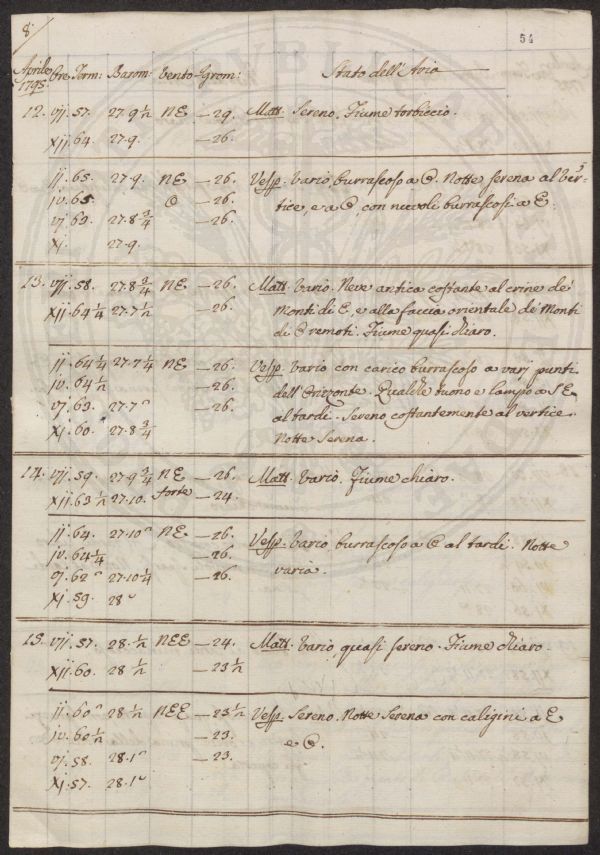 8.
54
Aprile Ore. Term: Barom: Vento Igrom: Stato dell'Aria
1795.
12. vij. 57. 27.9 ½ NE —29. Matt. Sereno. Fiume torbiccio.
xij. 64. 27.9. —26.
ij. 65. 27.9. NE —26. Vesp. Vario, burrascoso a O. Notte serena al ver-
iv. 65. O —26. tice, e a O, con nuvoli burrascosi a E.
vj. 69. 27.8 ¾ —26.
xj. 27.9.
13. vij. 58. 27.8 ¾ NE —26. Matt. Vario. Neve antica costante al crine de
xij. 64 ¼ 27.7 ½ —26. Monti di E, e alla faccia orientale de Monti
di O remoti. Fiume quasi chiaro.
ij. 64 ¼ 27.7 ¼ NE —26. Vesp. Vario con carico burrascoso a varj punti
iv. 64 ½ —26. dell'Orizzonte. Qualche tuono e lampo a SE
vj. 63. 27.7 —26. al tardi. Sereno costantemente al vertice.
xj. 60. 27.8 ¾ Notte Serena.
14. vij. 59. 27.9 ¾ NE —26. Matt. Vario. Fiume chiaro.
xij. 63 ½ 27.10. forte —24.
ij. 64. 27.10 NE —26. Vesp. Vario, burrascoso a O al tardi. Notte
iv. 64 ¼ —26. varia.
vj. 62 27.10 ¼ —26.
xj. 59. 28
15. vij. 57. 28. ½ NEE —24. Matt. Vario, quasi sereno. Fiume chiaro.
xij. 60. 28 ½ —23 ½
ij. 60 28 ½ NEE —23 ½ Vesp. Sereno. Notte Serena con caligini a E
iv. 60 ½ —23. e O.
vj. 58. 28.1 —23.
xj. 57. 28.1